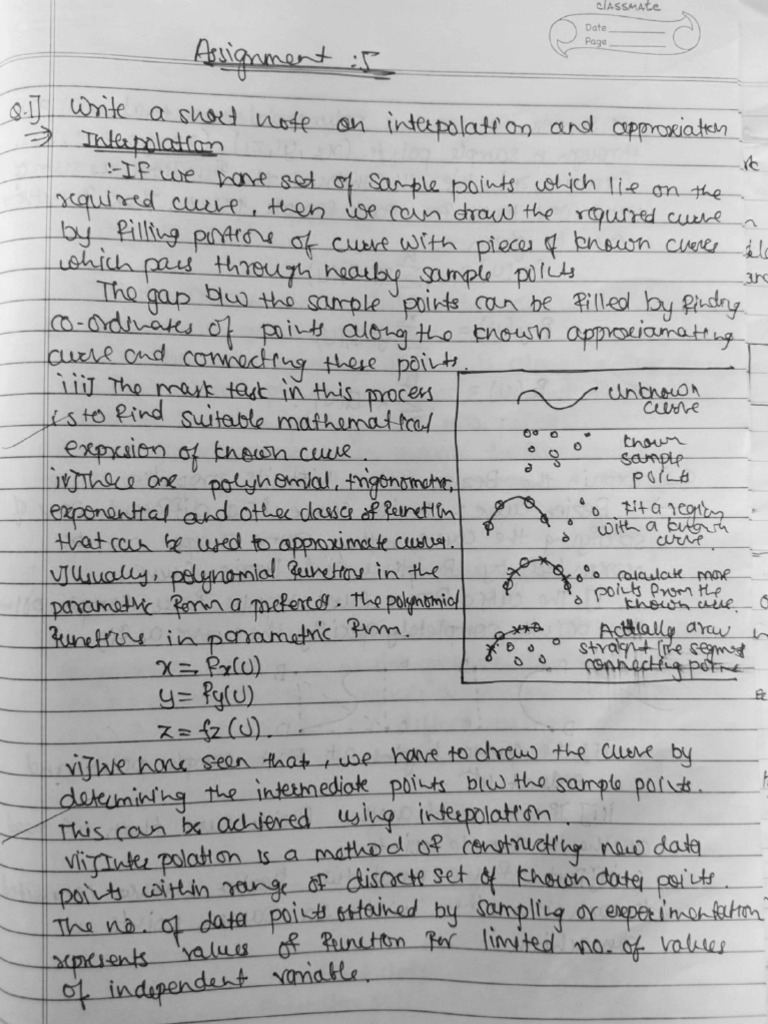 classmate
Date
Page
Assignment :5
Q.1] Write a short note on interpolation and approxiation
⇒ Interpolation
:-If we have set of sample points which lie on the
required curve, then we can draw the required curve
by filling portions of curve with pieces of known curves
which pass through nearby sample points
The gap b/w the sample points can be filled by finding
co-ordinates of points along the known approxiamating
curve and connecting these points.
iii] The mask task in this process
is to find suitable mathematical
expresion of known curve.
iv] There are polynomial, trigonometric,
exponential and other classes of function
that can be used to approximate curve.
v] Usually, polynomial functions in the
parametric form a prefered. The polynomial
functions in parametric form.
x = fx(U)
y = fy(U)
z = fz(U).
unknown
curve
known
sample
points
Fit a region
with a known
curve.
calculate more
points from the
known curve.
Actually draw
straight line segment
connecting points
vi] We have seen that, we have to draw the curve by
determining the intermediate points b/w the sample points.
This can be achieved using interpolation.
vii] Inter polation is a method of constructing new data
points within range of discrete set of known data points.
The no. of data points obtained by sampling or experimentation
represents values of function for limited no. of values
of independent variable.